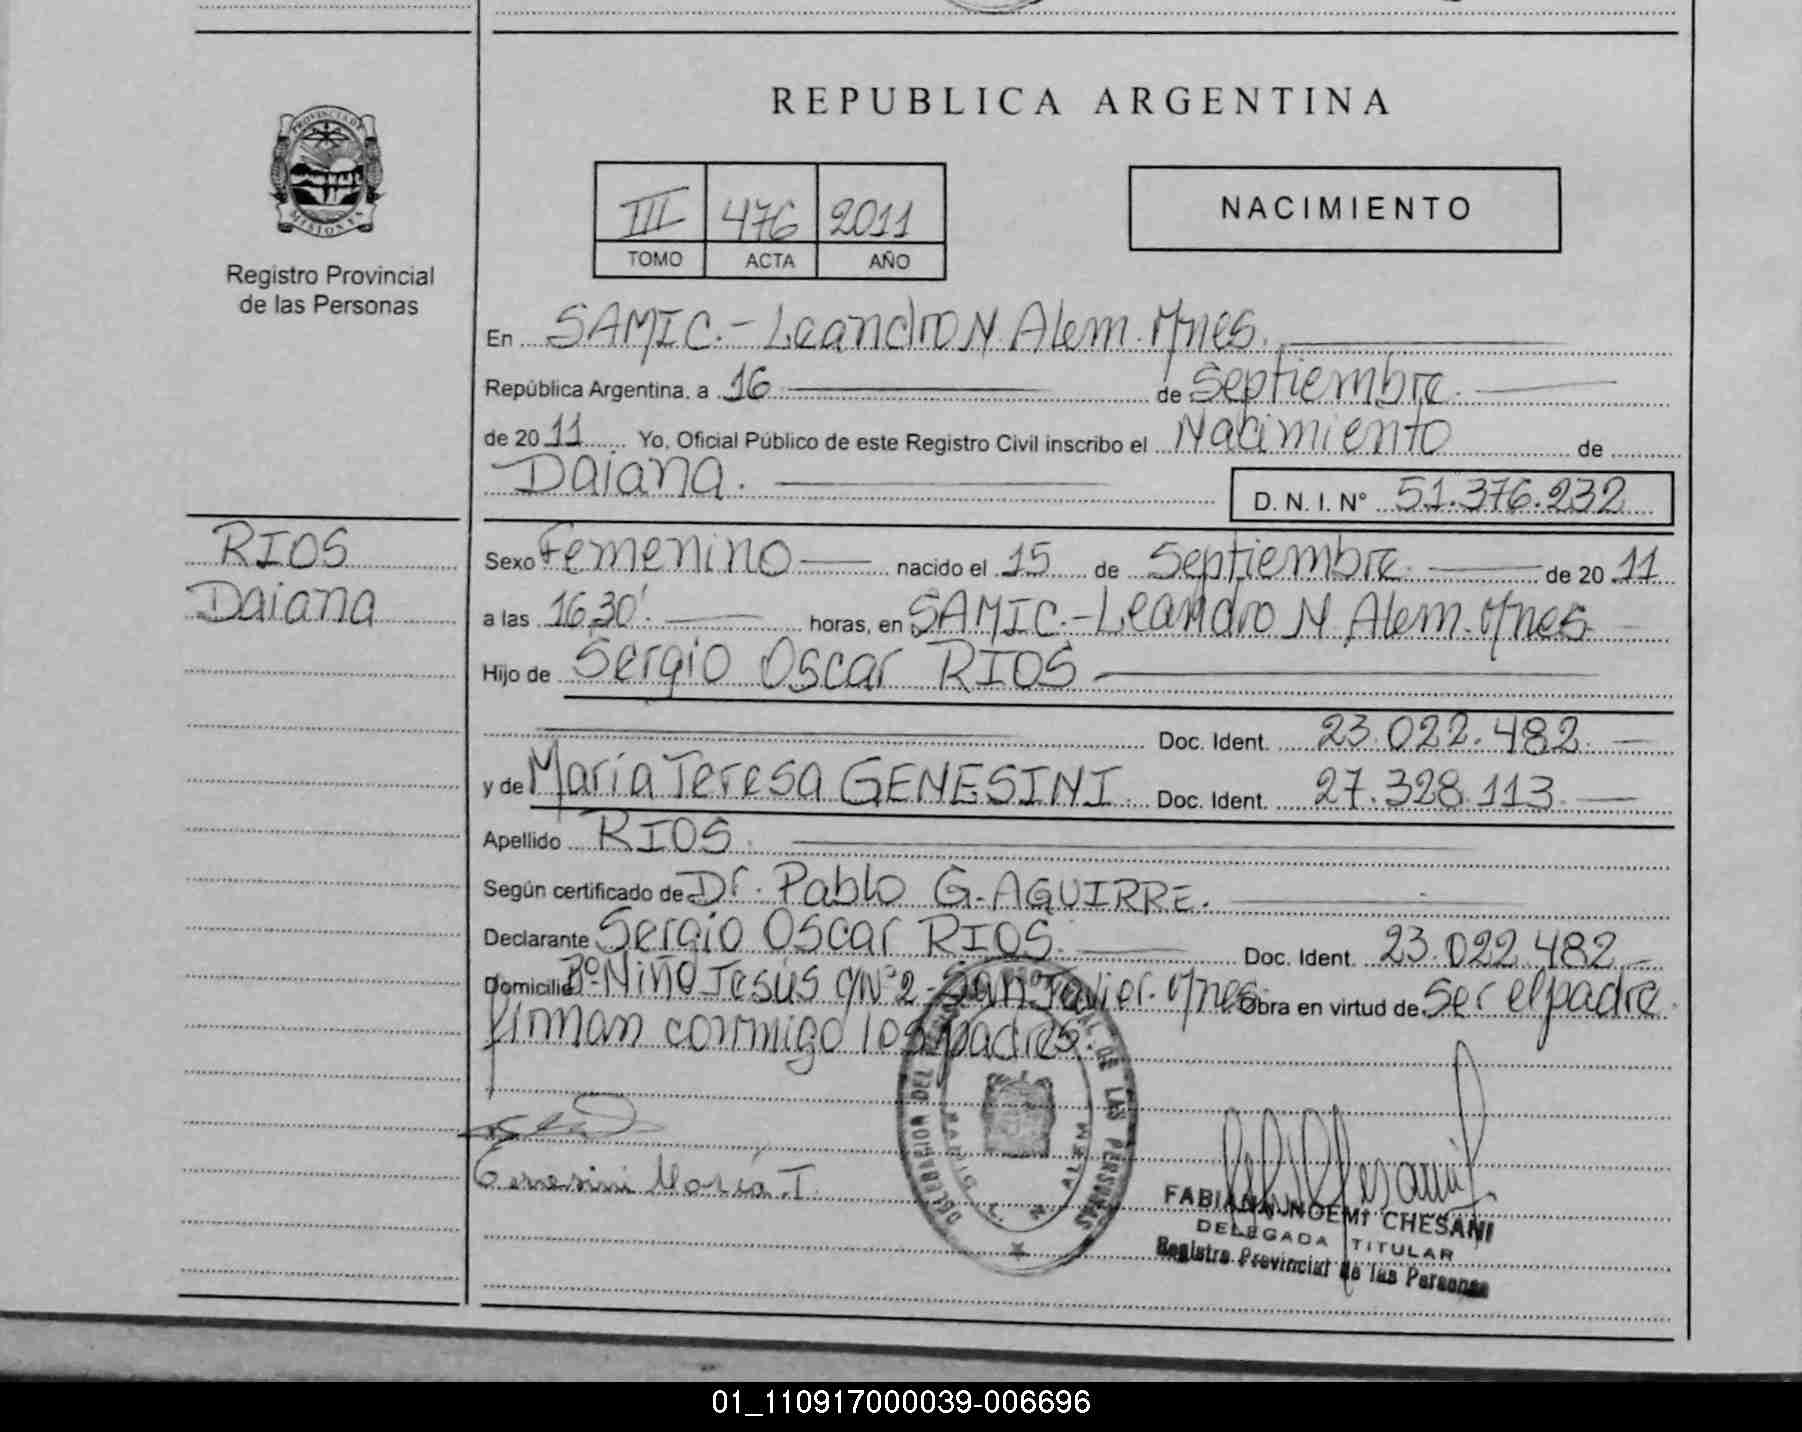 REPUBLICA ARGENTINA
PROVINCIA DE
MISIONES
Registro Provincial
de las Personas
III 476 2011
TOMO ACTA AÑO
NACIMIENTO
En SAMIC.- Leandro N. Alem. Mnes.
República Argentina, a 16 de Septiembre.
de 2011 Yo, Oficial Público de este Registro Civil inscribo el Nacimiento de
Daiana. D. N. I. N° 51.376.232
RIOS
Daiana
Sexo Femenino nacido el 15 de Septiembre. de 2011
a las 16,30'. horas, en SAMIC.- Leandro N. Alem. Mnes
Hijo de Sergio Oscar RIOS
Doc. Ident. 23.022.482.
y de María Teresa GENESINI. Doc. Ident. 27.328.113.
Apellido RIOS.
Según certificado de Dr. Pablo G. AGUIRRE.
Declarante Sergio Oscar RIOS. Doc. Ident. 23.022.482
Domicilio Bº Niño Jesús C/Nº2 - San Javier. Mnes. Obra en virtud de Ser el padre.
firman conmigo los padres.
Genesini María T.
DE LAS PERSONAS
ALEM
FABIANA NOEMI CHESANI
DELEGADA TITULAR
Registro Provincial de las Personas
01_110917000039-006696